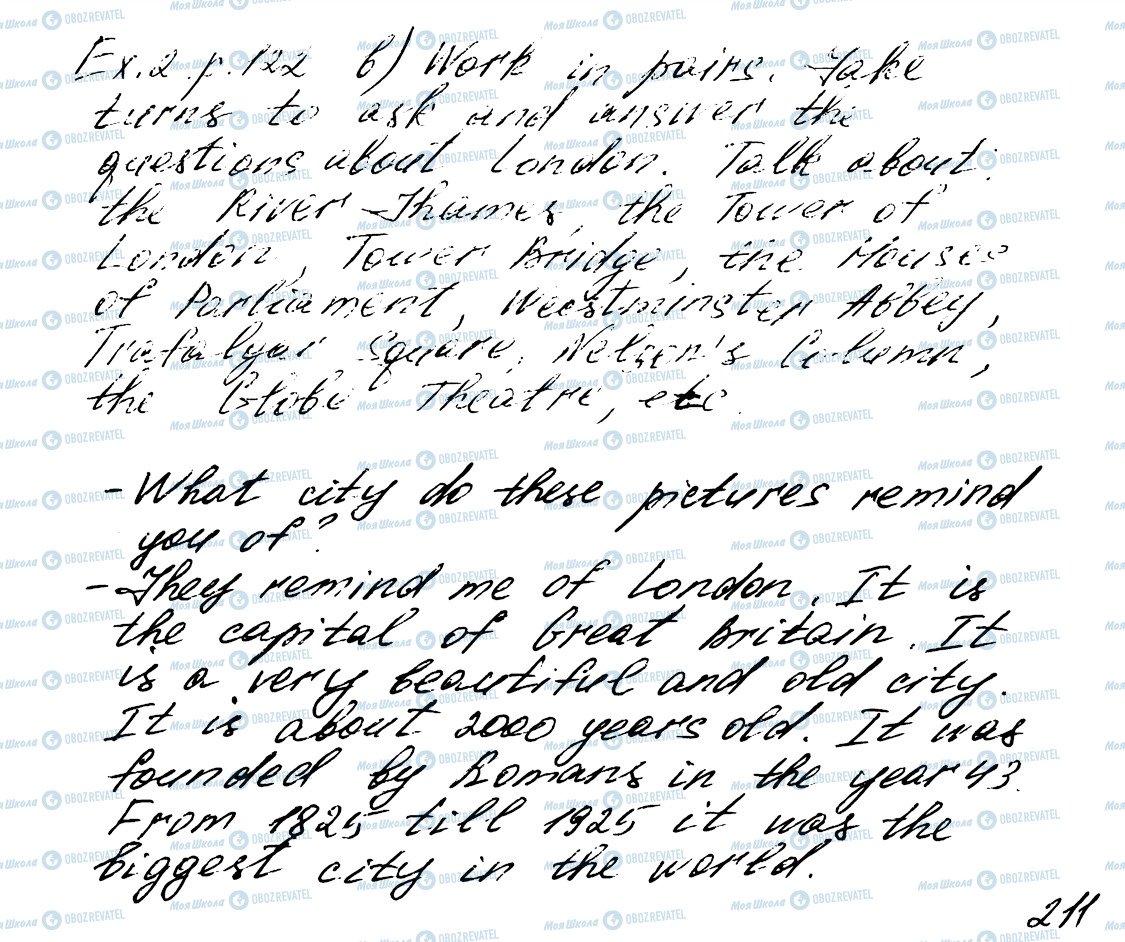 Ex. 2 p. 122 b) Work in pairs. Take
turns to ask and answer the
questions about London. Talk about:
the River Thames, the Tower of
London, Tower Bridge, the Houses
of Parliament, Westminster Abbey,
Trafalgar Square, Nelson's Column,
the Globe Theatre, etc.
- What city do these pictures remind
you of?
- They remind me of London. It is
the capital of Great Britain. It
is a very beautiful and old city.
It is about 2000 years old. It was
founded by Romans in the year 43.
From 1825 till 1925 it was the
biggest city in the world.
211
МояШкола OBOZREVATEL